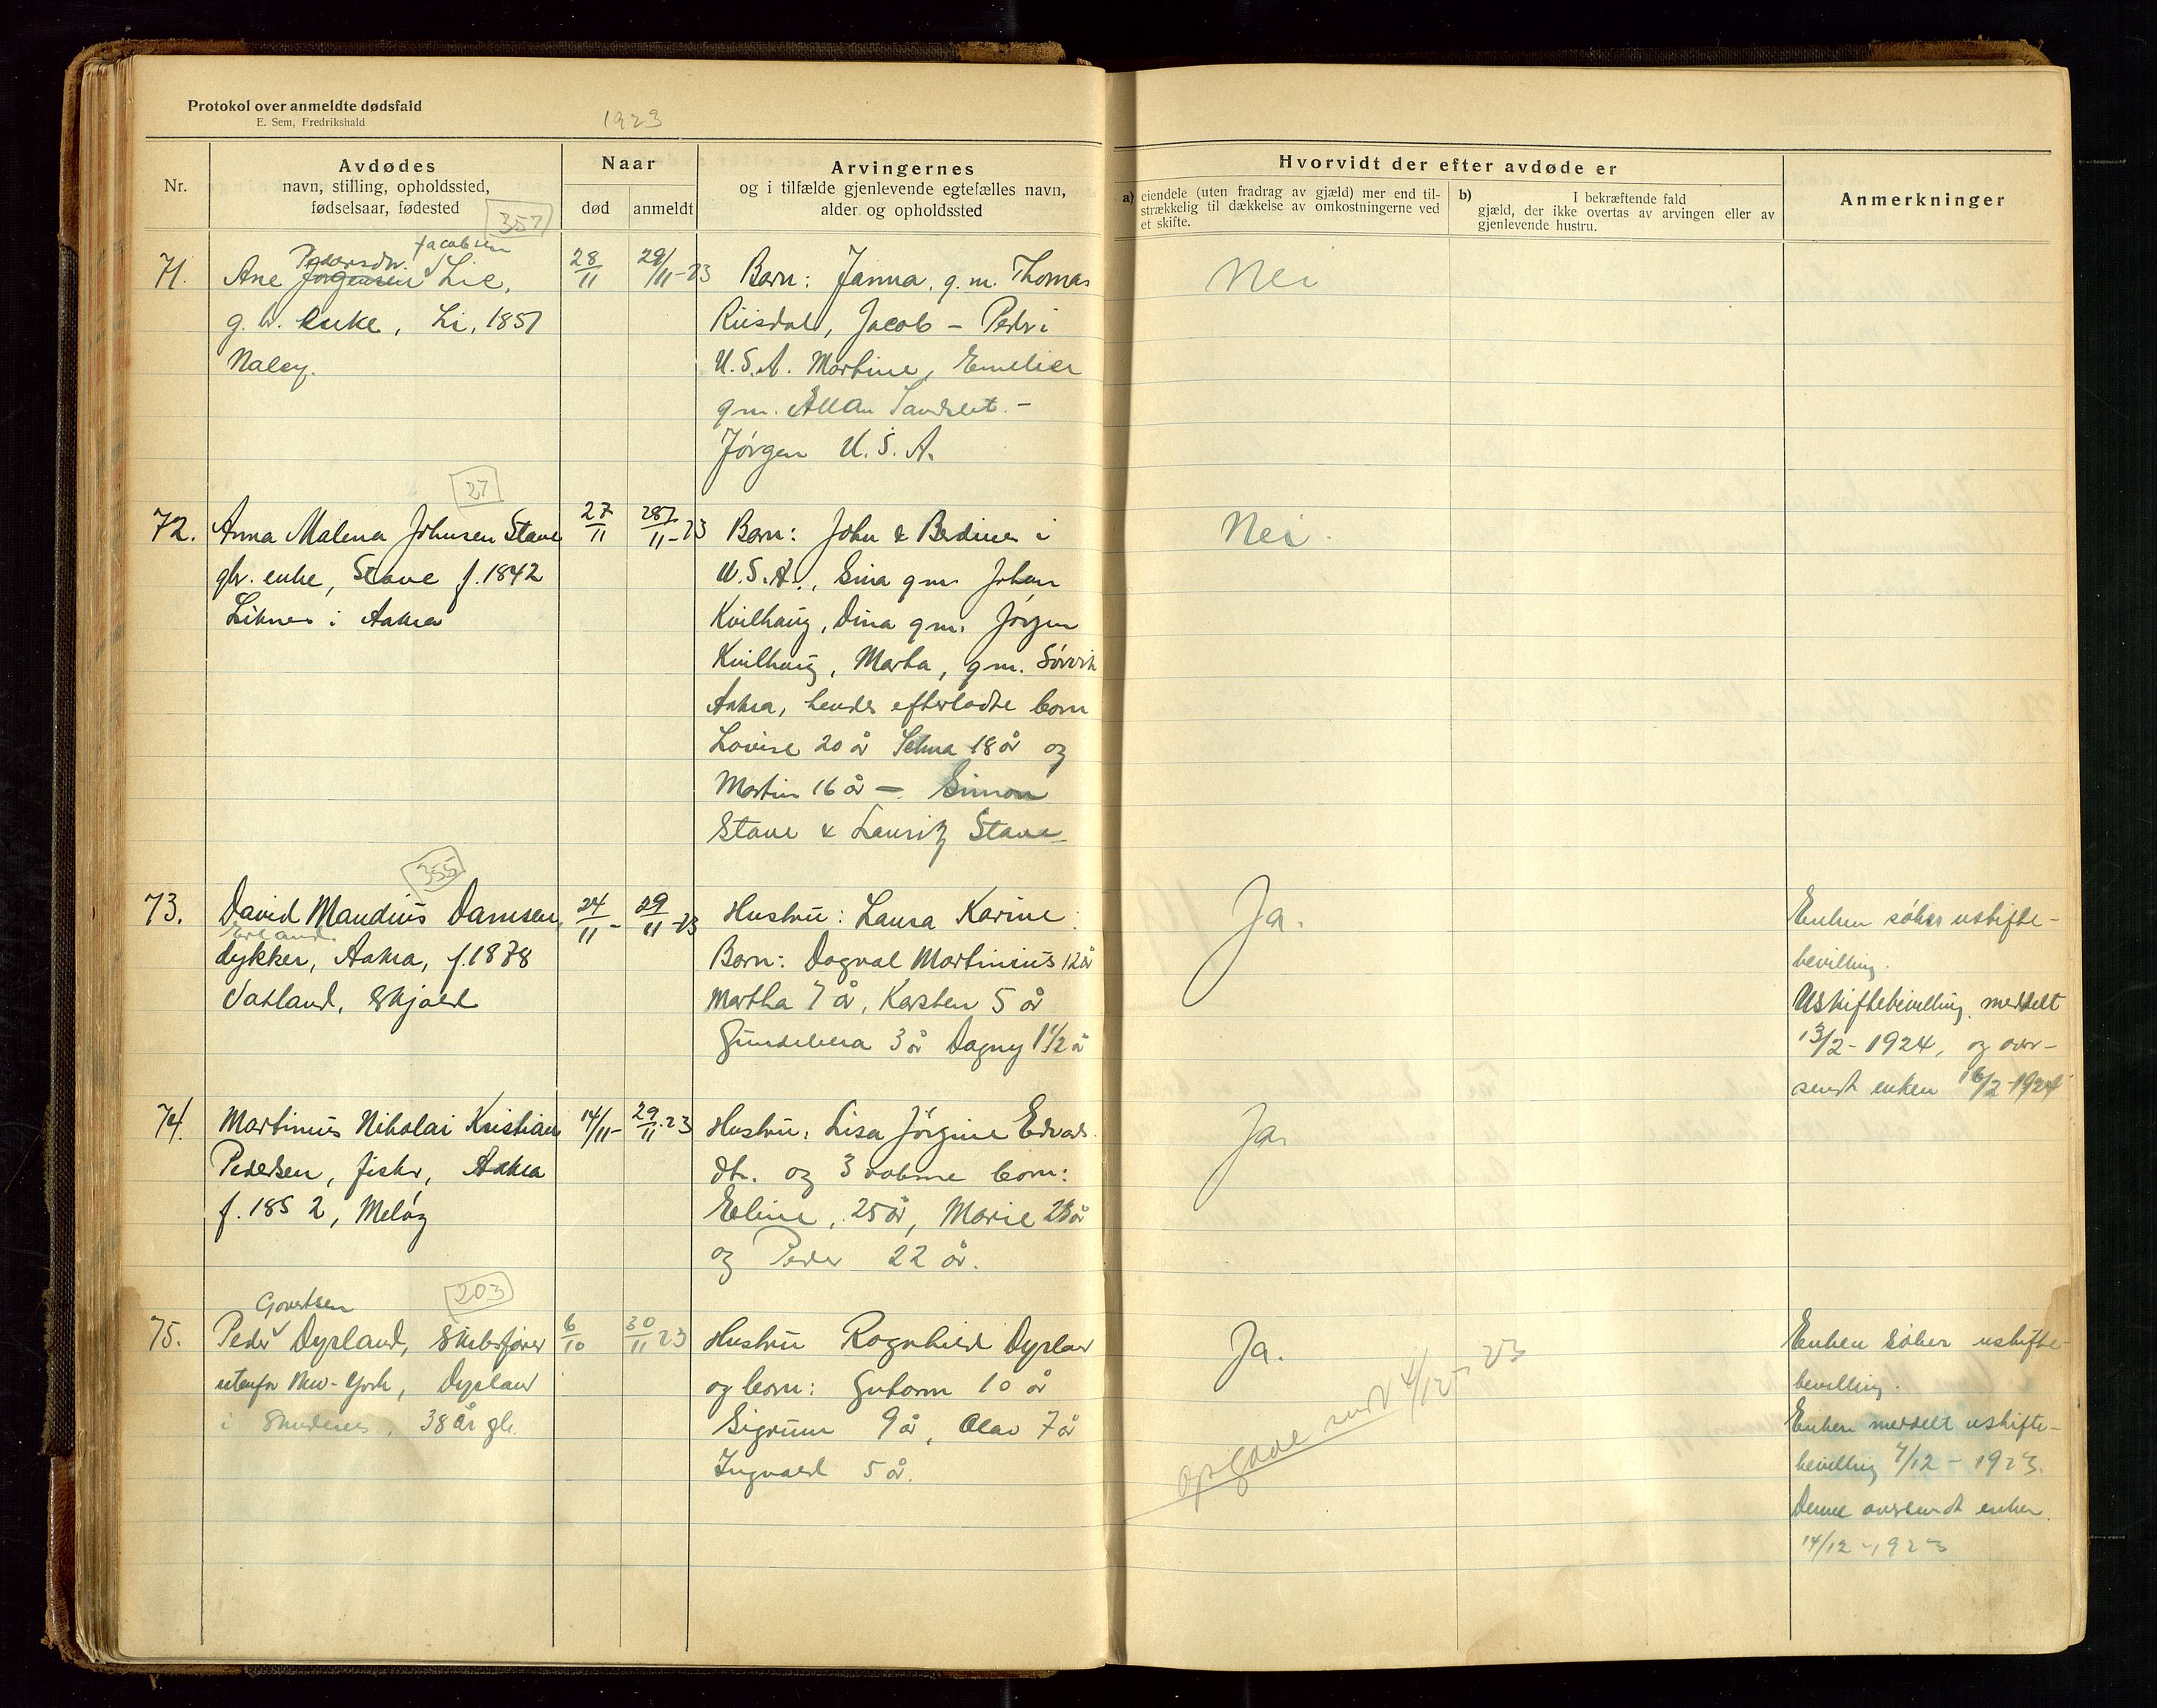 Protokol over anmeldte dødsfald
E. Sem, Fredrikshald
1923
Nr.
Avdødes
navn, stilling, opholdssted,
fødselsaar, fødested
Naar
død
anmeldt
Arvingernes
og i tilfælde gjenlevende egtefælles navn,
alder og opholdssted
Hvorvidt der efter avdøde er
a) eiendele (uten fradrag av gjæld) mer end til-
strækkelig til dækkelse av omkostningerne ved
et skifte.
b) I bekræftende fald
gjæld, der ikke overtas av arvingen eller av
gjenlevende hustru.
Anmerkninger
357
71.
Pedersdr. Jacobsen
Ane Jørgensen Lie,
g. br. enke, Li, 1851
28/11
29/11-23
Barn: Janna, g. m. Thomas
Riisdal, Jacob - Peder i
U.S.A. Martine, Emelie
gm. Allan Sandslet. -
Jørgen U.S.A.
Nei
27
72.
Anna Malena Johnsen Stave
gbr. enke, Stave f. 1842
Liknes i Aakra
27/11
28/11-23
Barn: John & Berdines i
U.S.A., Sina gm. Johan
Kvilhaug, Dina gm. Jørgen
Kvilhaug, Marta, gm. Sørvik
Aakra, hendes efterladte born
Lovise 20 år Selma 18 år og
Martin 16 år - Simon
Stave & Lauritz Stave
Nei.
355
73.
David Mandius Damsen,
dykker, Aakra, f. 1878
Vatland, Skjold
24/11-
29/11-23
Hustru: Laura Karine
Barn: Dagval Martinius 12 år
Martha 7 år, Karsten 5 år
3 år Dagny 1 1/2 å
Ja.
Enken søker uskifte-
bevilling.
Uskiftebevilling meddelt
13/2-1924, og over-
sendt enken 16/2-1924
74.
Martinus Nikolai Kristian
Pedersen, fisker, Aakra
f. 1852, Meløy
14/11-
29/11-23
Hustru: Lisa Jørgine Edvards
dtr. og 3 voksne born:
Eline, 25 år, Marie 23 år
og Peder 22 år.
Ja
203
75.
Govertsen
Peder Dyrland, Skibsfører
utenfor New-York, Dyrland
i Skudenes, 38 år gl.
6/10
30/11 23
Hustru Ragnhild Dyrland
og born: Gutorm 10 år
Sigrunn 9 år, Olav 7 år
Ingvald 5 år.
Ja.
opgave sendt 4/12-23
Enken søker uskifte-
bevilling.
Enken meddelt uskifte-
bevilling 4/12-1923.
Denne oversendt enken.
14/12-1923